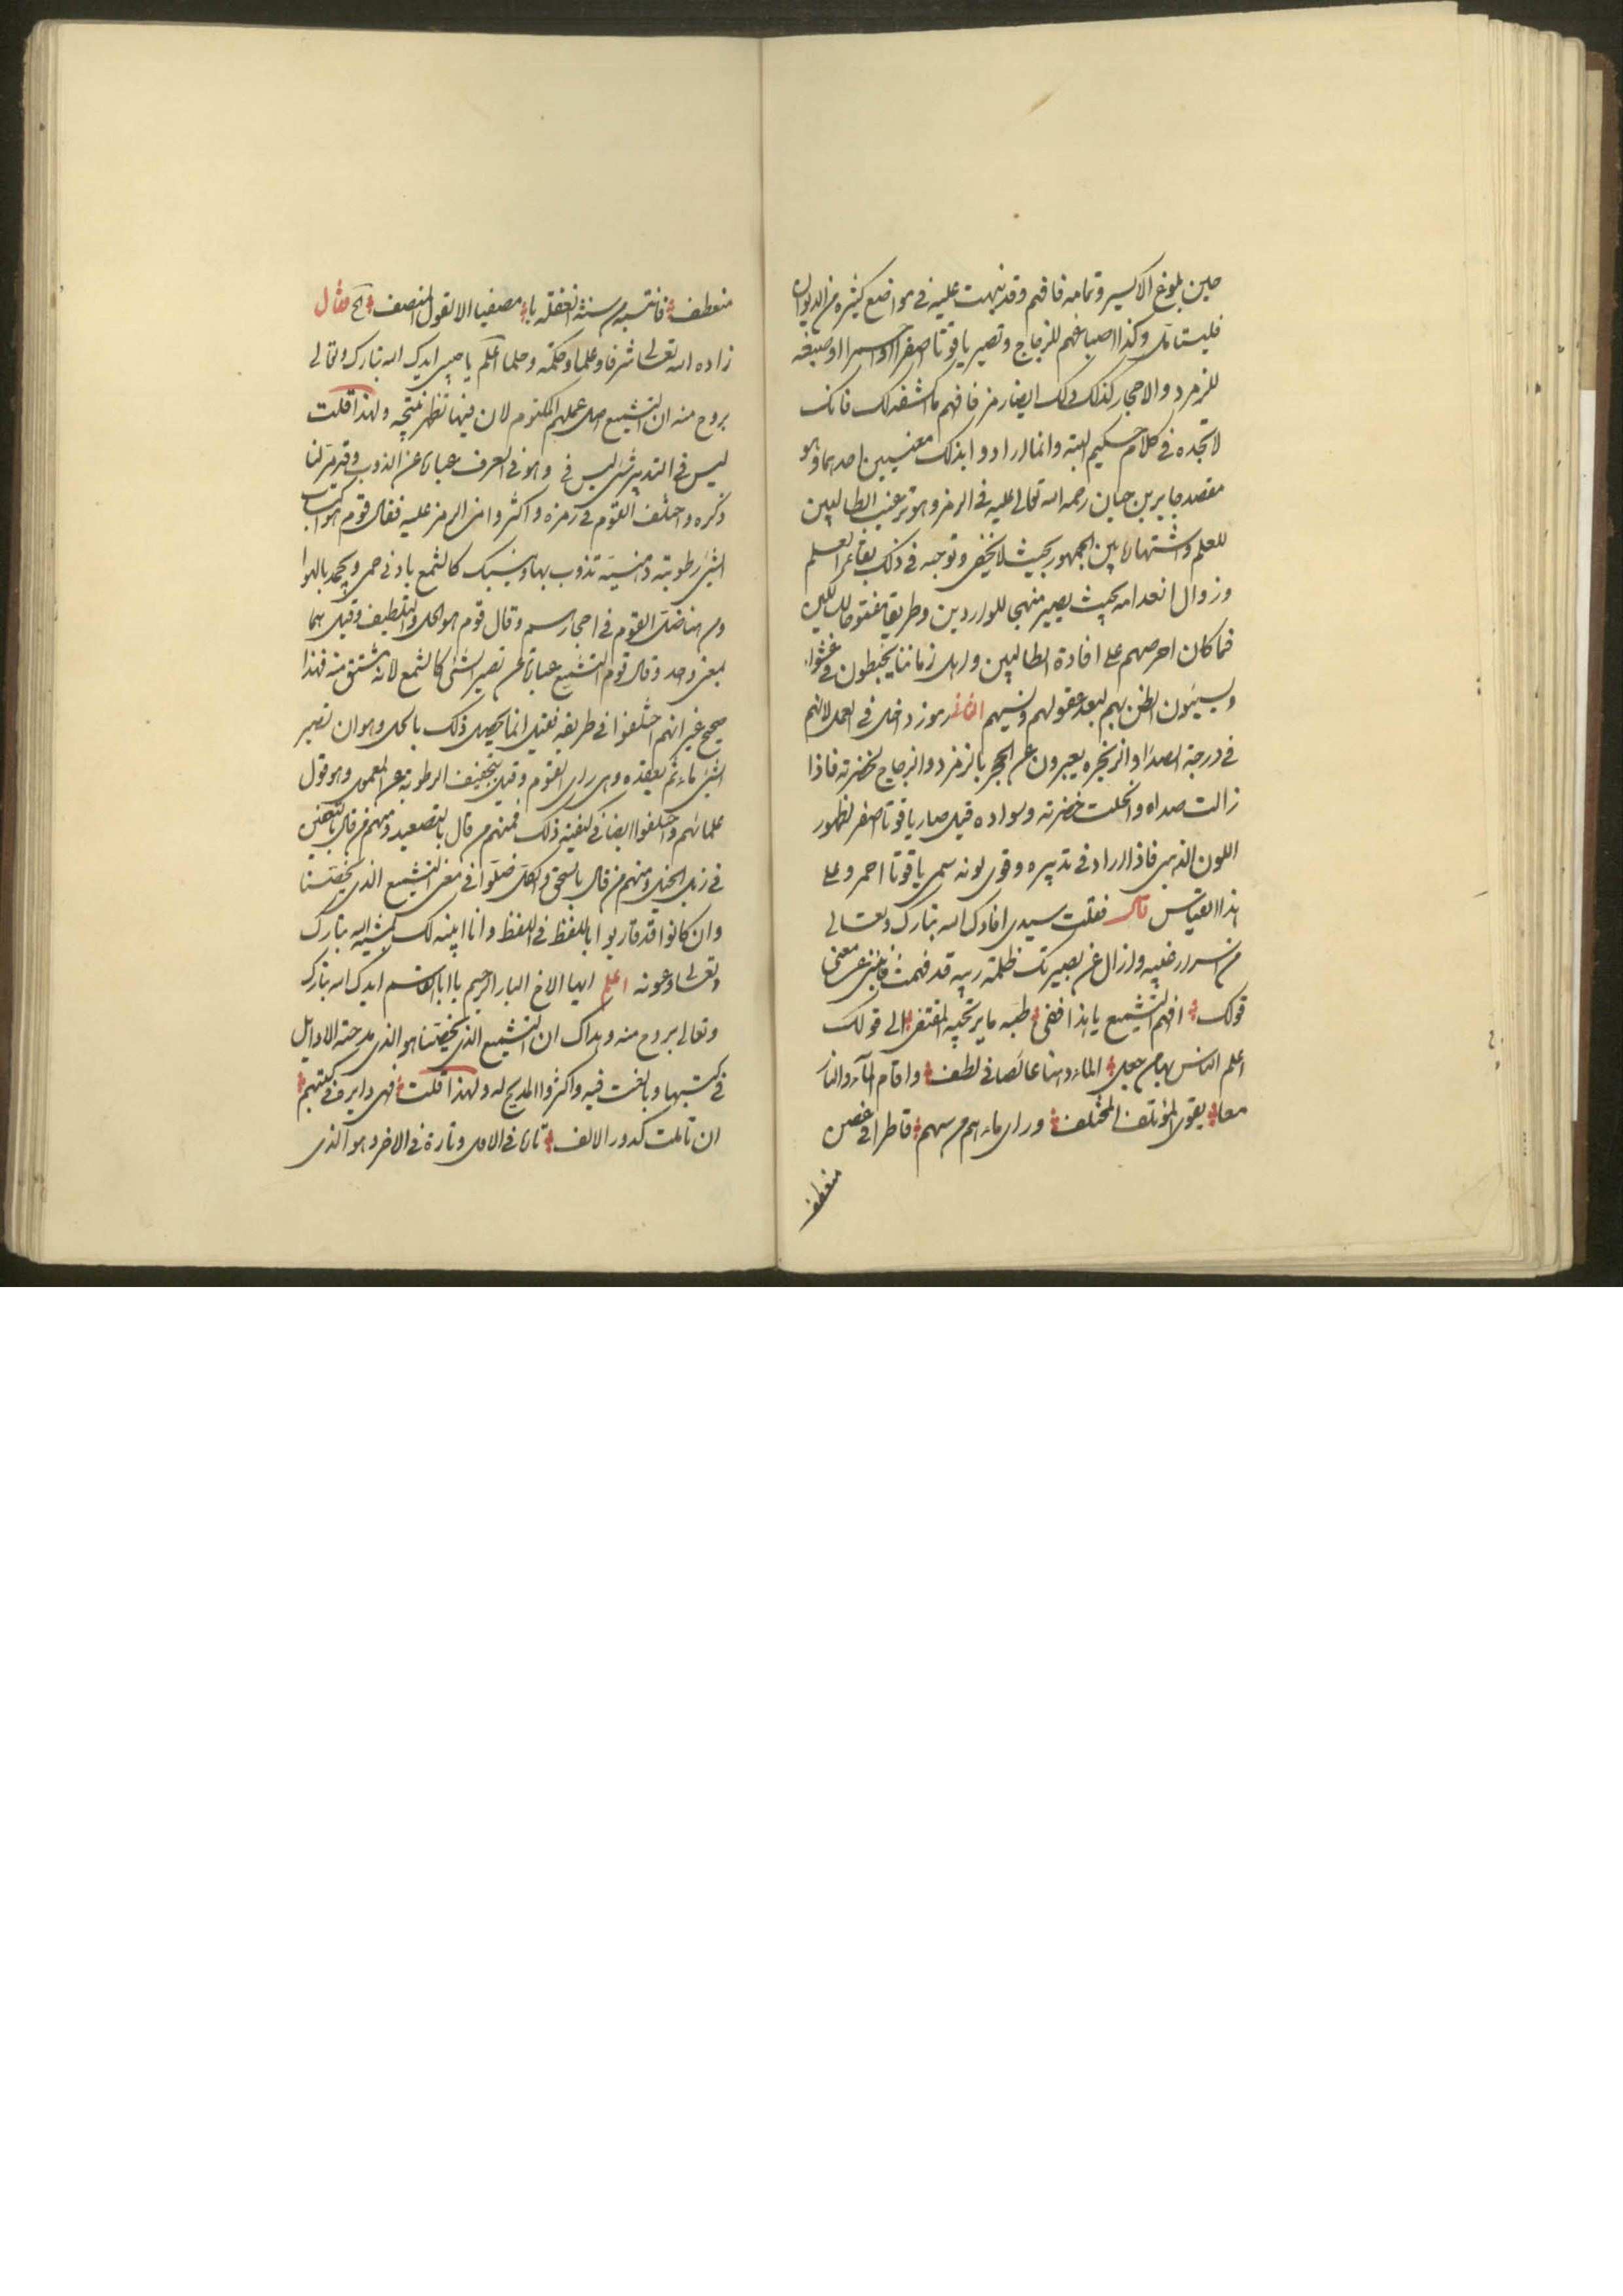 حين بلوغ الاكسير وتمامه فافهم وقد نبهت عليه فى مواضع كثيره من الديوان
فليتامل وكذا اصباغهم للزجاج وتصير ياقوتا اصفرا او احمرا او صبغه
للزمرد والاحجار كذلك وذلك ايضا رمز فافهم ما كشفه لك فانك
لا تجده فى كلام حكيم البته وانما ارادوا بذلك معنيين احدهما وهو
مقصد جابر بن حيان رحمه الله تعالى عليه فى الرمز وهو ترغيب الطالبين
للعلم واشتهاره بين الجمهور بحيث لا يخفى وتوجبه فى ذلك بقاء العلم
وزوال انعدامه بحيث يصير منهجا للواردين وطريقا مفتوحا للسالكين
فما كان احرصهم على افادة الطالبين واهل زماننا يخبطون فى عشواء
ويسيئون الظن بهم لبعد عقولهم ونسيهم الثانى رموز داخل فى العمل لانهم
فى درجة الصدا والزنجره يعبرون عن الحجر بالزمرد والزجاج لخضرته فاذا
زالت صداه وانحلت خضرته وسواده قيل صار ياقوتا اصفر لظهور
اللون الذهبى فاذا زاد فى تدبيره وقوى لونه سمى ياقوتا احمر وعلى
هذا القياس قال فقلت سيدى افادك الله تبارك وتعالى
من اسرار غيبه وازال عن بصيرتك ظلمة ريبه قد فهمت فاخبرنى عن معنى
قولك افهم التشميع يا هذا ففى طبه ما يرتجيه المقتفى الى قولك
اعلم الناس بها من جعل الماء دهنا غائصا فى لطف واقام الماء والنار
معا بقوى المؤتلف المختلف وراى ماءهم من سهم قاطرا فى غصن
منعطف
منعطف فانتبه من سنة الغفلة يا مصغيا الا لقول المنصف الخ فقال
زاده الله تعالى شرفا وعلما وحكمة وحلما اعلم يا حبيبى ايدك الله تبارك وتعالى
بروح منه ان التشميع اصل عملهم المكتوم لان فيها تظهر نتيجه ولهذا قلت
ليس فى التدبير شى ليس فى وهو فى العرف عبارة عن الذوب وقد مر لنا
ذكره واختلف القوم فى رمزه واكثروا من الرمز عليه فقال قوم هو اكتساب
الشئ رطوبة دهنيه تذوب بها وينسبك كالشمع بادنى حمى ويجمد بالهوا
ومن هنا ضل القوم فى احجارهم وقال قوم هو الحل والتلطيف وقيل هما
بمعنى واحد وقال قوم التشميع عبارة عن تصير الشئ كالشمع لانه مشتق منه فهذا
صحيح غير انهم اختلفوا فى طريقه فقيل انما يحصل ذلك بالحل وهو ان تصير
الشئ ماء ثم يعقده وهى راى القوم وقيل بتجفيف الرطوبة عن المعمول وهو قول
علمائهم واختلفوا ايضا فى كيفية ذلك فمنهم من قال بالتصعيد ومنهم من قال بالتعفين
فى زبل الخيل ومنهم من قال بالسحق والكل ضلوا فى معنى التشميع الذى يخصنا
وان كانوا قد قاربوا باللفظ فى اللفظ وانا ابينه لك بمشية الله تبارك
وتعالى وعونه اعلم ايها الاخ البار الرحيم يا ابا القاسم ايدك الله تبارك
وتعالى بروح منه وهداك ان التشميع الذى يخصنا هو الذى مدحته الاوايل
فى كتبها وبالغت فيه واكثروا المديح له ولهذا قلت فهى دايره فى كتبهم
ان تاملت كدور الالف تارة فى الاول وتارة فى الاخر وهو الذى